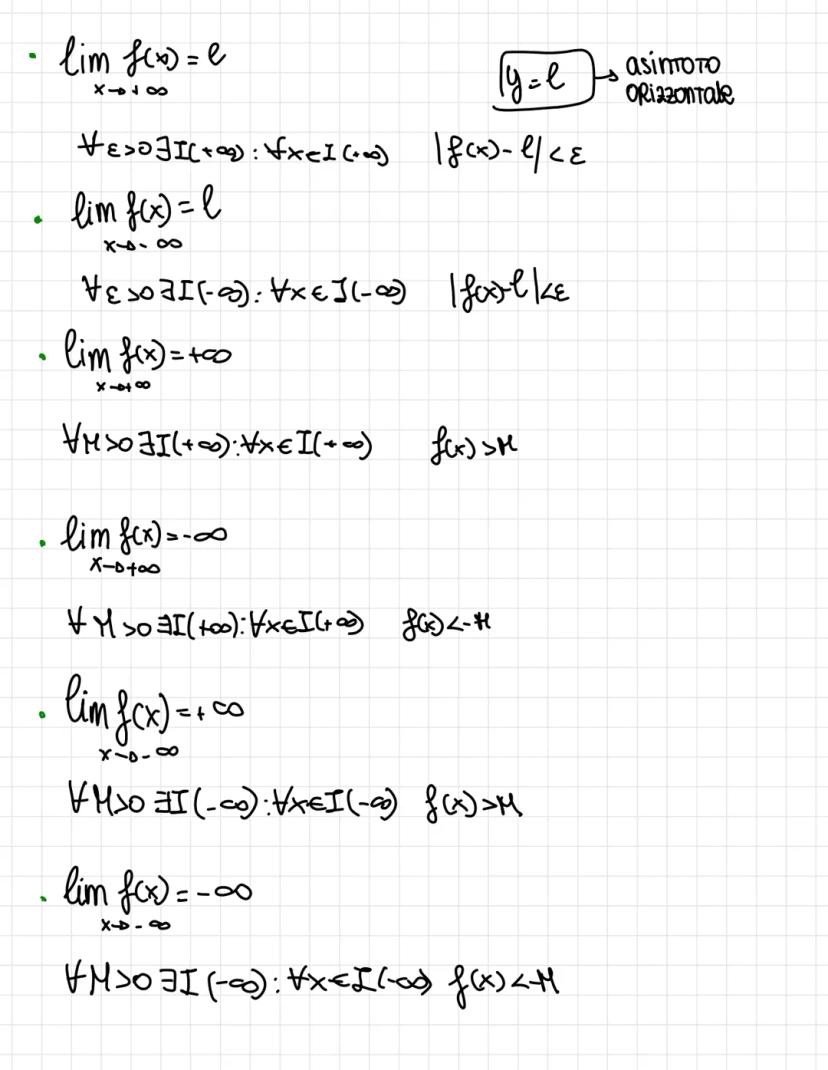 • lim f(x) = l
x→+∞
y = l → asintoto
orizzontale
∀ε>0 ∃I(+∞) : ∀x∈I(+∞) |f(x) - l| < ε
• lim f(x) = l
x→-∞
∀ε>0 ∃I(-∞) : ∀x∈I(-∞) |f(x)-l|<ε
• lim f(x) = +∞
x→+∞
∀M>0 ∃I(+∞) : ∀x∈I(+∞) f(x)>M
• lim f(x) = -∞
x→+∞
∀M>0 ∃I(+∞) : ∀x∈I(+∞) f(x)<-M
• lim f(x) = +∞
x→-∞
∀M>0 ∃I(-∞) : ∀x∈I(-∞) f(x)>M
• lim f(x) = -∞
x→-∞
∀M>0 ∃I(-∞) : ∀x∈I(-∞) f(x)<-M